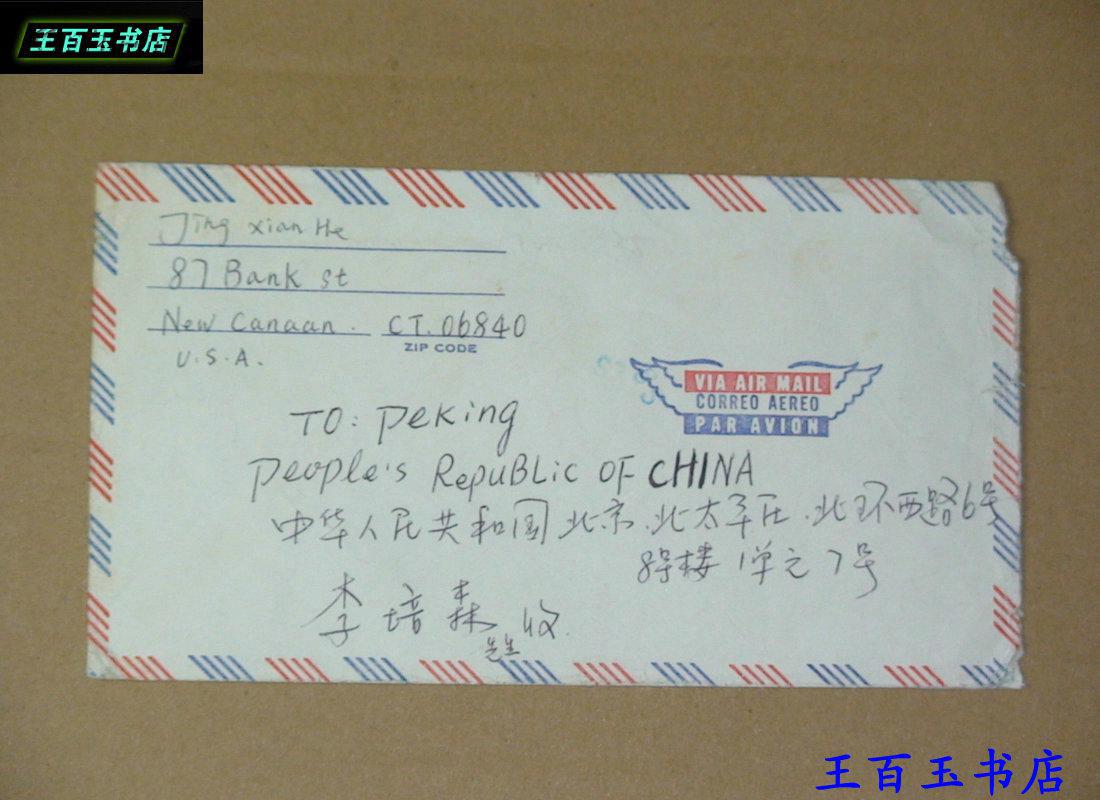 王百玉书店
Jing xian He
87 Bank st
New Canaan. CT. 06840
ZIP CODE
U.S.A.
VIA AIR MAIL
CORREO AEREO
PAR AVION
TO: Peking
People's RepuBLic OF CHINA
中华人民共和国北京.北太平庄.北环西路6号
8号楼 1单元 7号
李培森先生收
王百玉书店